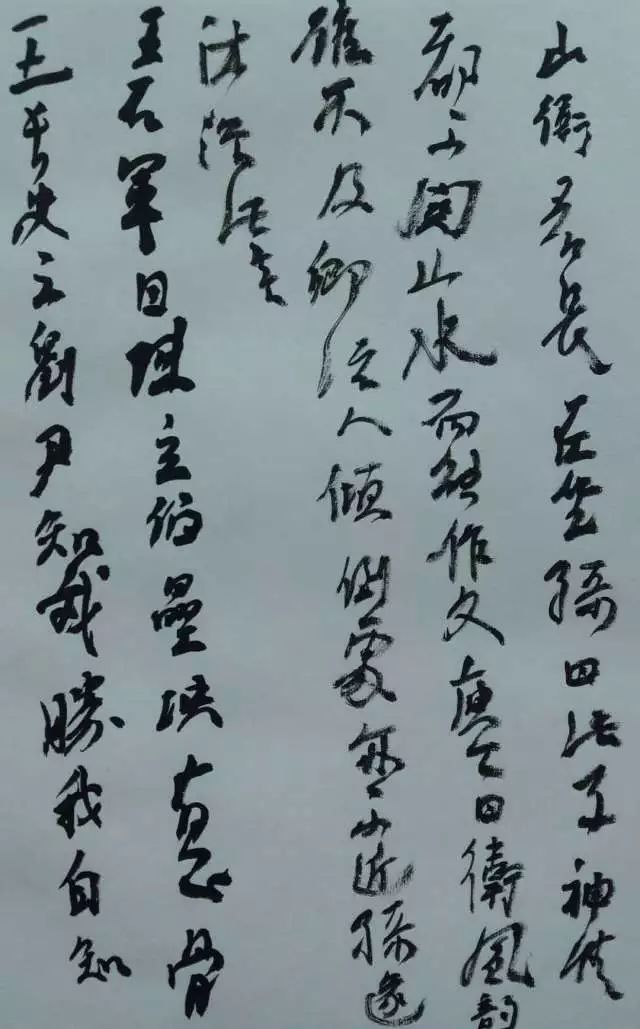 山衛君長在坐孫曰此子神情
都不関山水而能作文庾公曰衛風韵
雖不及卿諸人傾倒處亦不近孫遂
沐浴此言
王右軍目陳玄伯壘塊有正骨
王長史云劉尹知我勝我自知